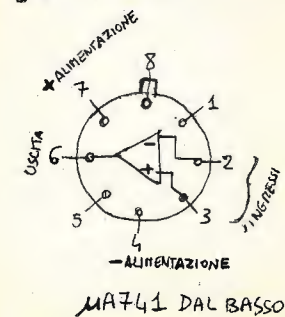 + ALIMENTAZIONE
8
7
1
USCITA
6
-
+
2
INGRESSI
5
3
4
- ALIMENTAZIONE
µA741 DAL BASSO